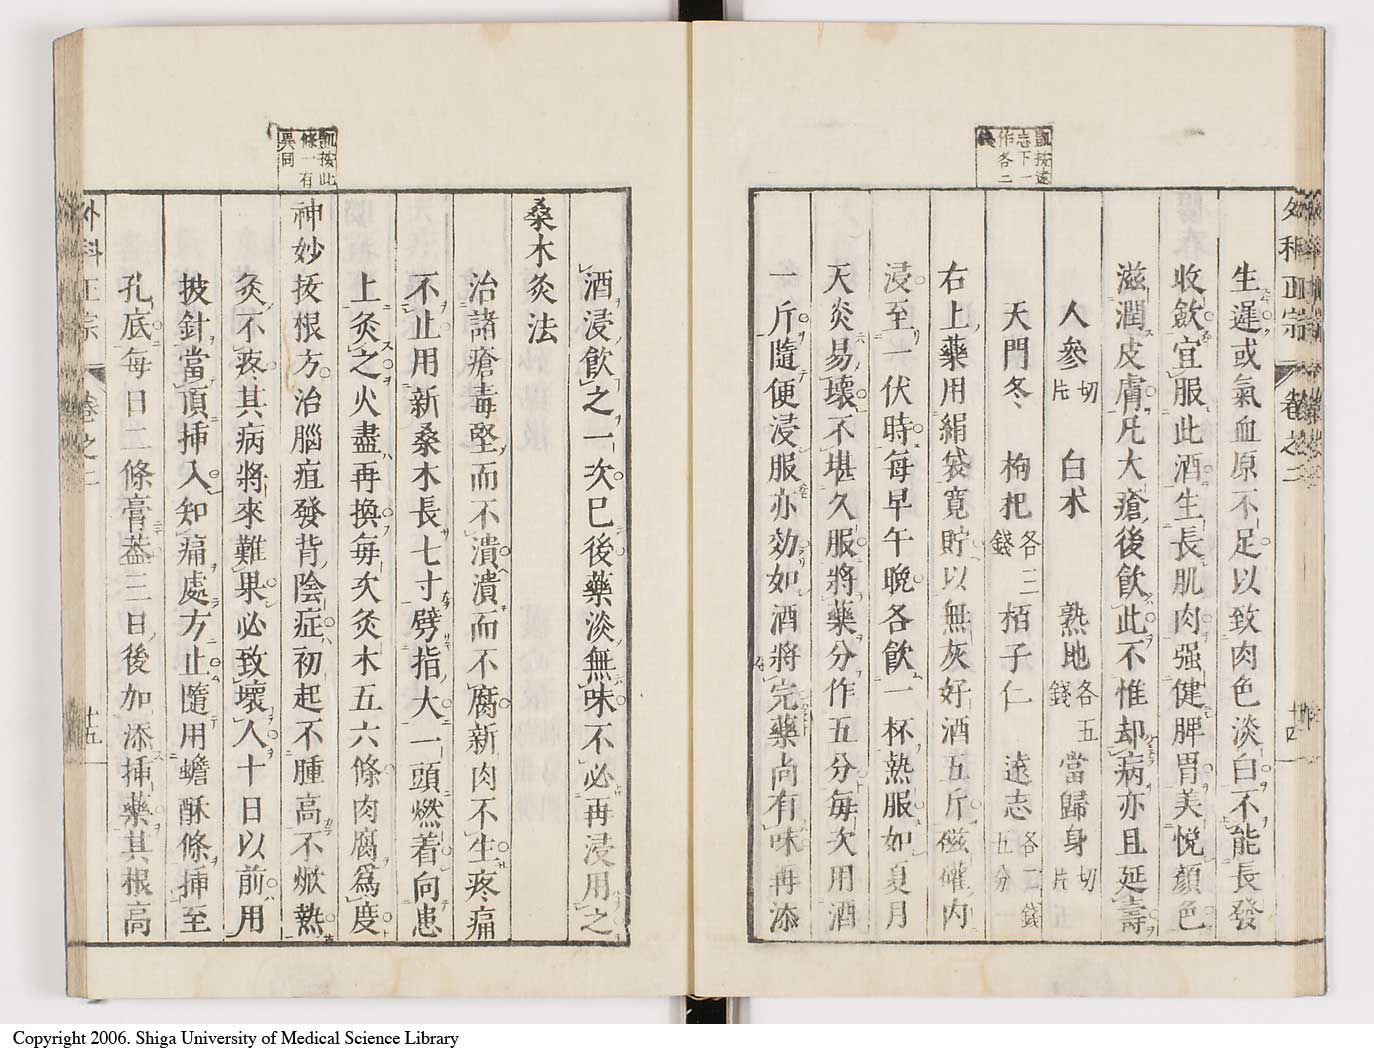 凱按遠
志下一
作各二
錢
外科正宗 卷之二 十四
生遲或氣血原不足以致肉色淡白不能長發
收斂宜服此酒生長肌肉强健脾胃美悅顔色
滋潤皮膚凡大瘡後飮此不惟却病亦且延壽
人參切片 白术 熟地各五錢 當歸身切片
天門冬 枸杞各三錢 栢子仁 遠志各二錢五分
右上藥用絹袋寬貯以無灰好酒五斤磁罐内
浸至一伏時每早午晚各飮一杯熟服如夏月
天炎易壞不堪久服將藥分作五分每次用酒
一斤隨便浸服亦効如酒將完藥尚有味再添
酒浸飮之一次已後藥淡無味不必再浸用之
桑木灸法
治諸瘡毒堅而不潰潰而不腐新肉不生疼痛
不止用新桑木長七寸劈指大一頭燃着向患
上灸之火盡再換每次灸木五六條肉腐爲度
凱按此
條一有
異同
神妙拔根方治腦疽發背陰症初起不腫高不焮熱
灸不疼其病將來難果必致壞人十日以前用
披針當頂揷入知痛處方止隨用蟾酥條揷至
孔底每日二條膏葢三日後加添揷藥其根高
外科正宗 卷之二 十五
Copyright 2006. Shiga University of Medical Science Library